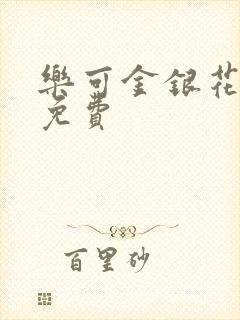 樂可金銀花
免費
百里砂